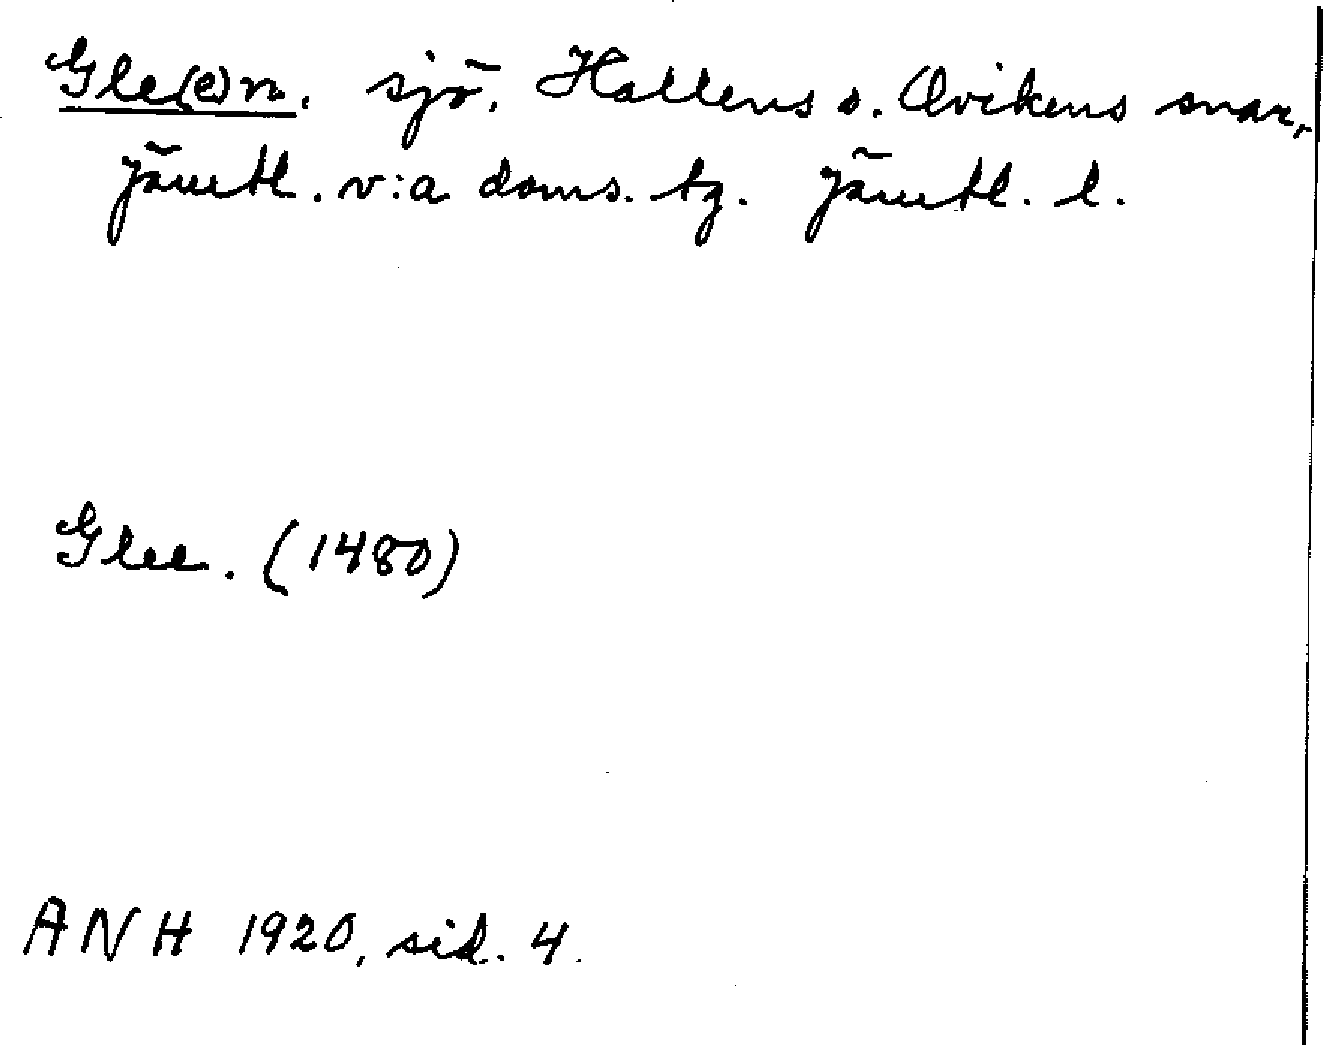 Gle(e)n. sjö. Hallens s. Ovikens snar,
Jämtl. v:a doms. tg. Jämtl. l.
Glee. (1480)
ANH 1920, sid. 4.